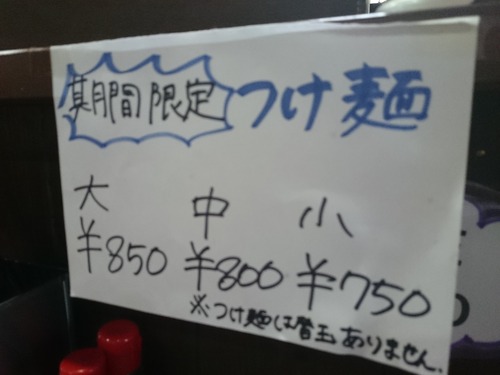 期間限定 つけ麺
大 中 小
¥850 ¥800 ¥750
※つけ麺は替玉ありません.